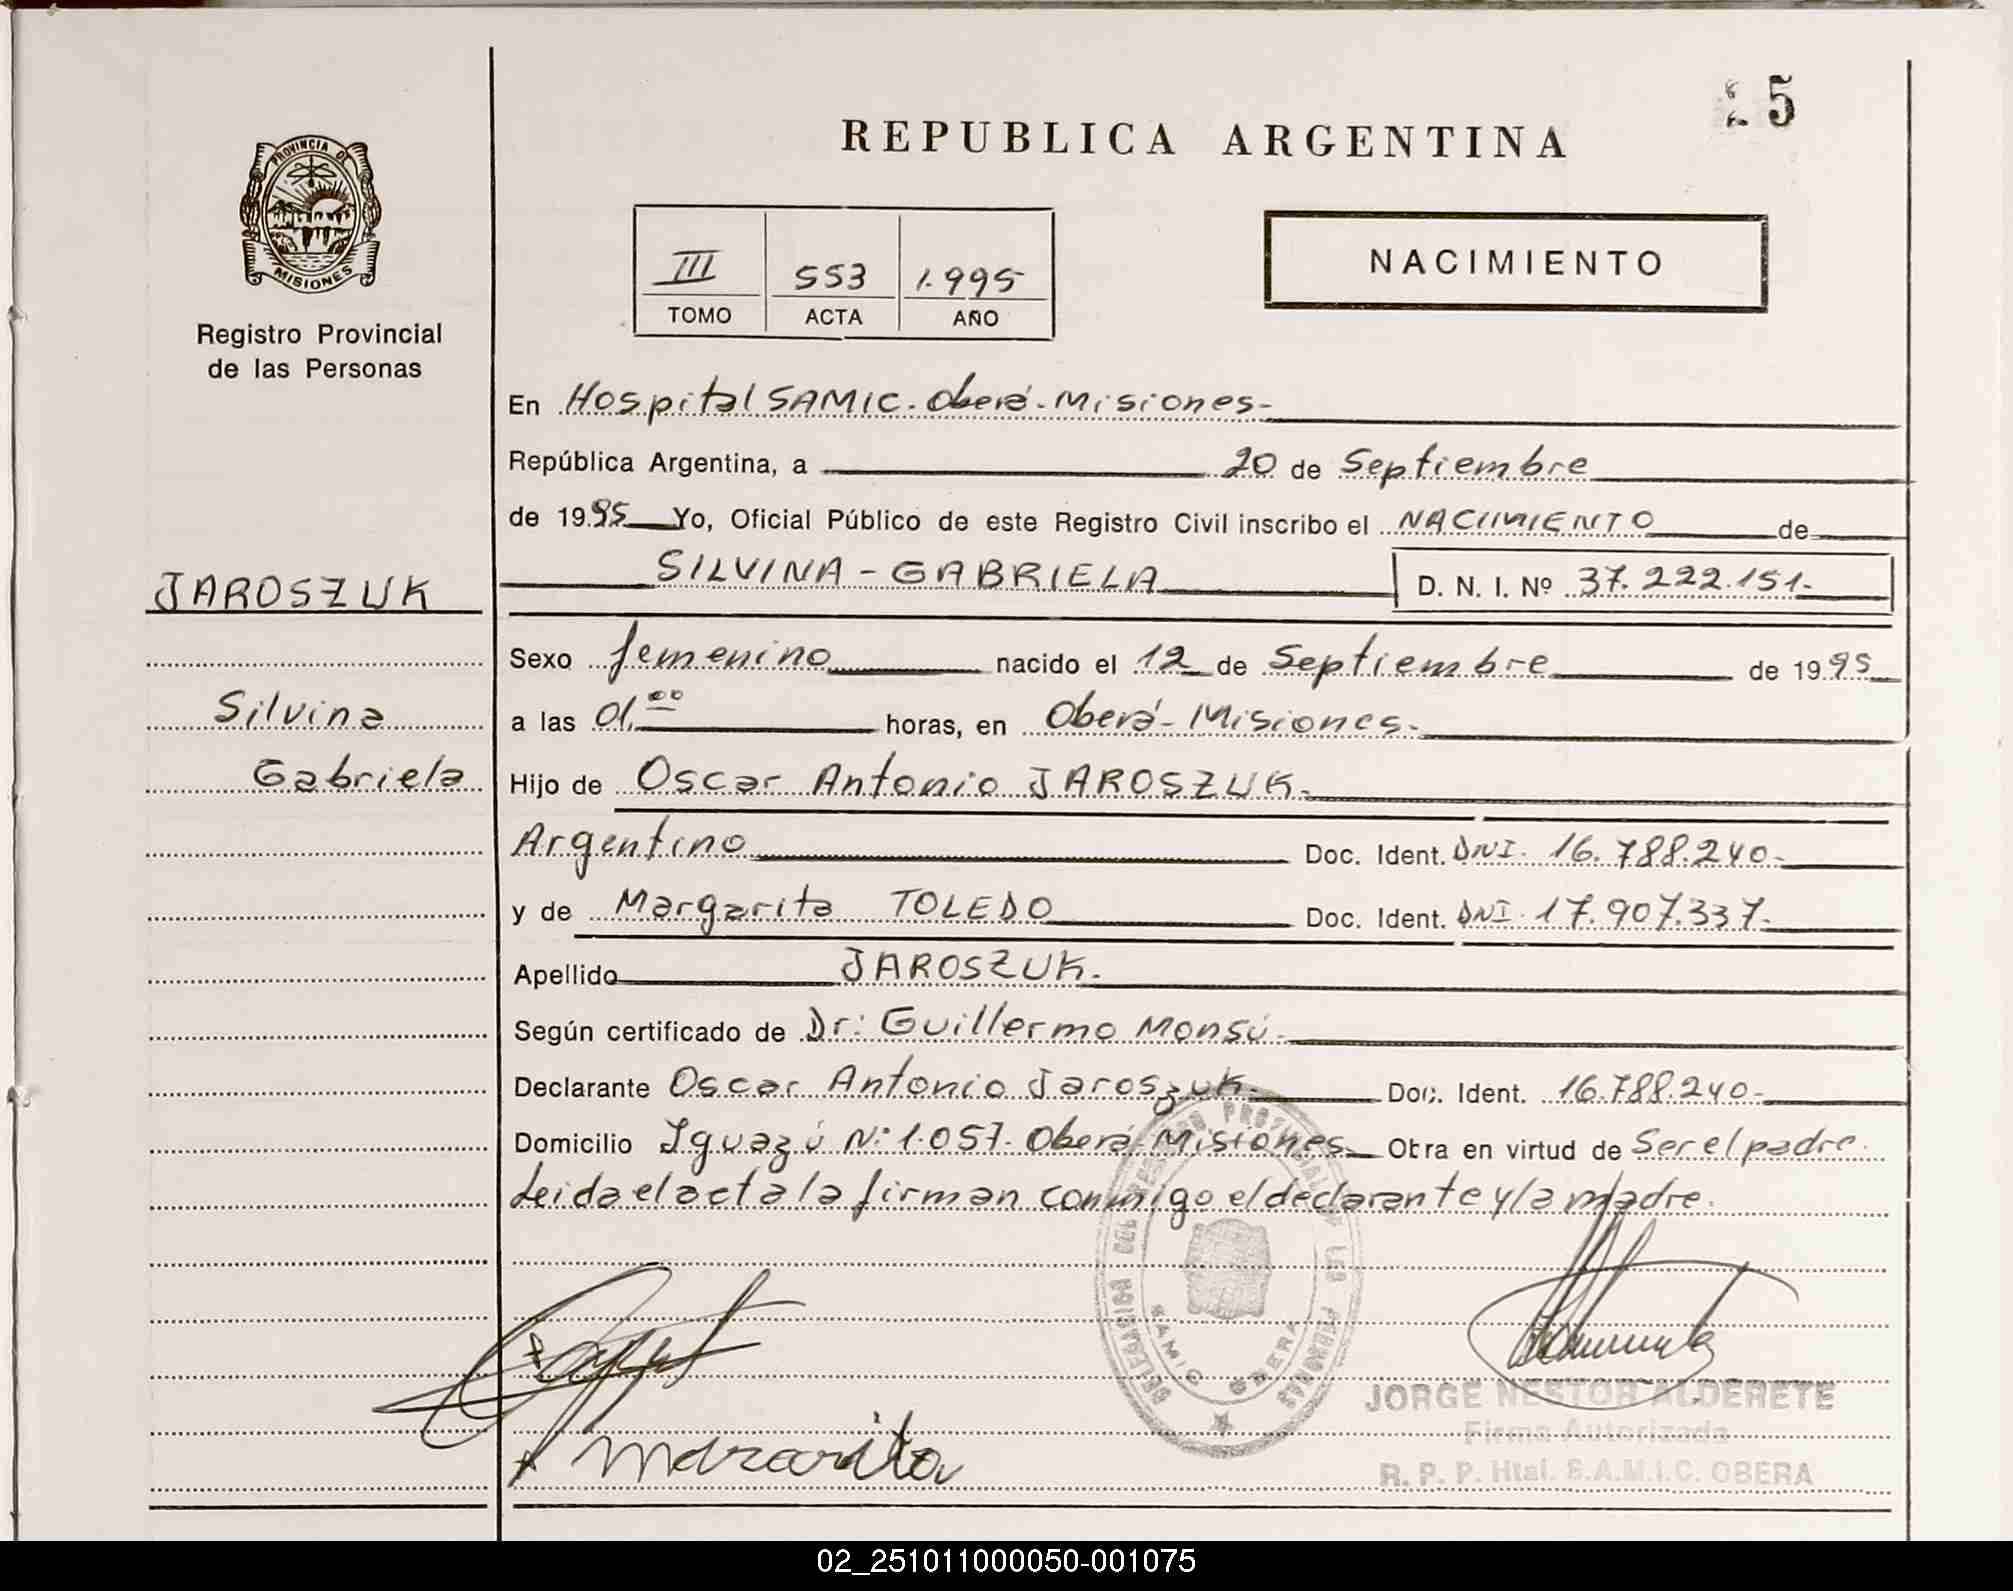 25
REPUBLICA ARGENTINA
PROVINCIA DE
MISIONES
Registro Provincial
de las Personas
III 553 1.995
TOMO ACTA AÑO
NACIMIENTO
En Hospital SAMIC. Oberá-Misiones-
República Argentina, a 20 de Septiembre
de 1995 Yo, Oficial Público de este Registro Civil inscribo el NACIMIENTO de
SILVINA-GABRIELA D. N. I. Nº 37.222.151.-
JAROSZUK
Sexo femenino nacido el 12 de Septiembre de 1995
Silvina
a las 01.00 horas, en Oberá-Misiones.-
Gabriela
Hijo de Oscar Antonio JAROSZUK.-
Argentino Doc. Ident. DNI. 16.788.240-
y de Margarita TOLEDO Doc. Ident. DNI. 17.907.337-
Apellido JAROSZUK.-
Según certificado de Dr: Guillermo Monsú-
Declarante Oscar Antonio Jaroszuk.- Doc. Ident. 16.788.240-
Domicilio Iguazú Nº 1.057. Oberá-Misiones- Obra en virtud de Ser el padre.
Leida el acta la firman conmigo el declarante y la madre.
DELEGACION DEL REGISTRO PROVINCIAL DE LAS PERSONAS
SAMIC OBERA
Margarita
JORGE NESTOR ALDERETE
Firma Autorizada
R. P. P. Htal. S.A.M.I.C. OBERA
02_251011000050-001075